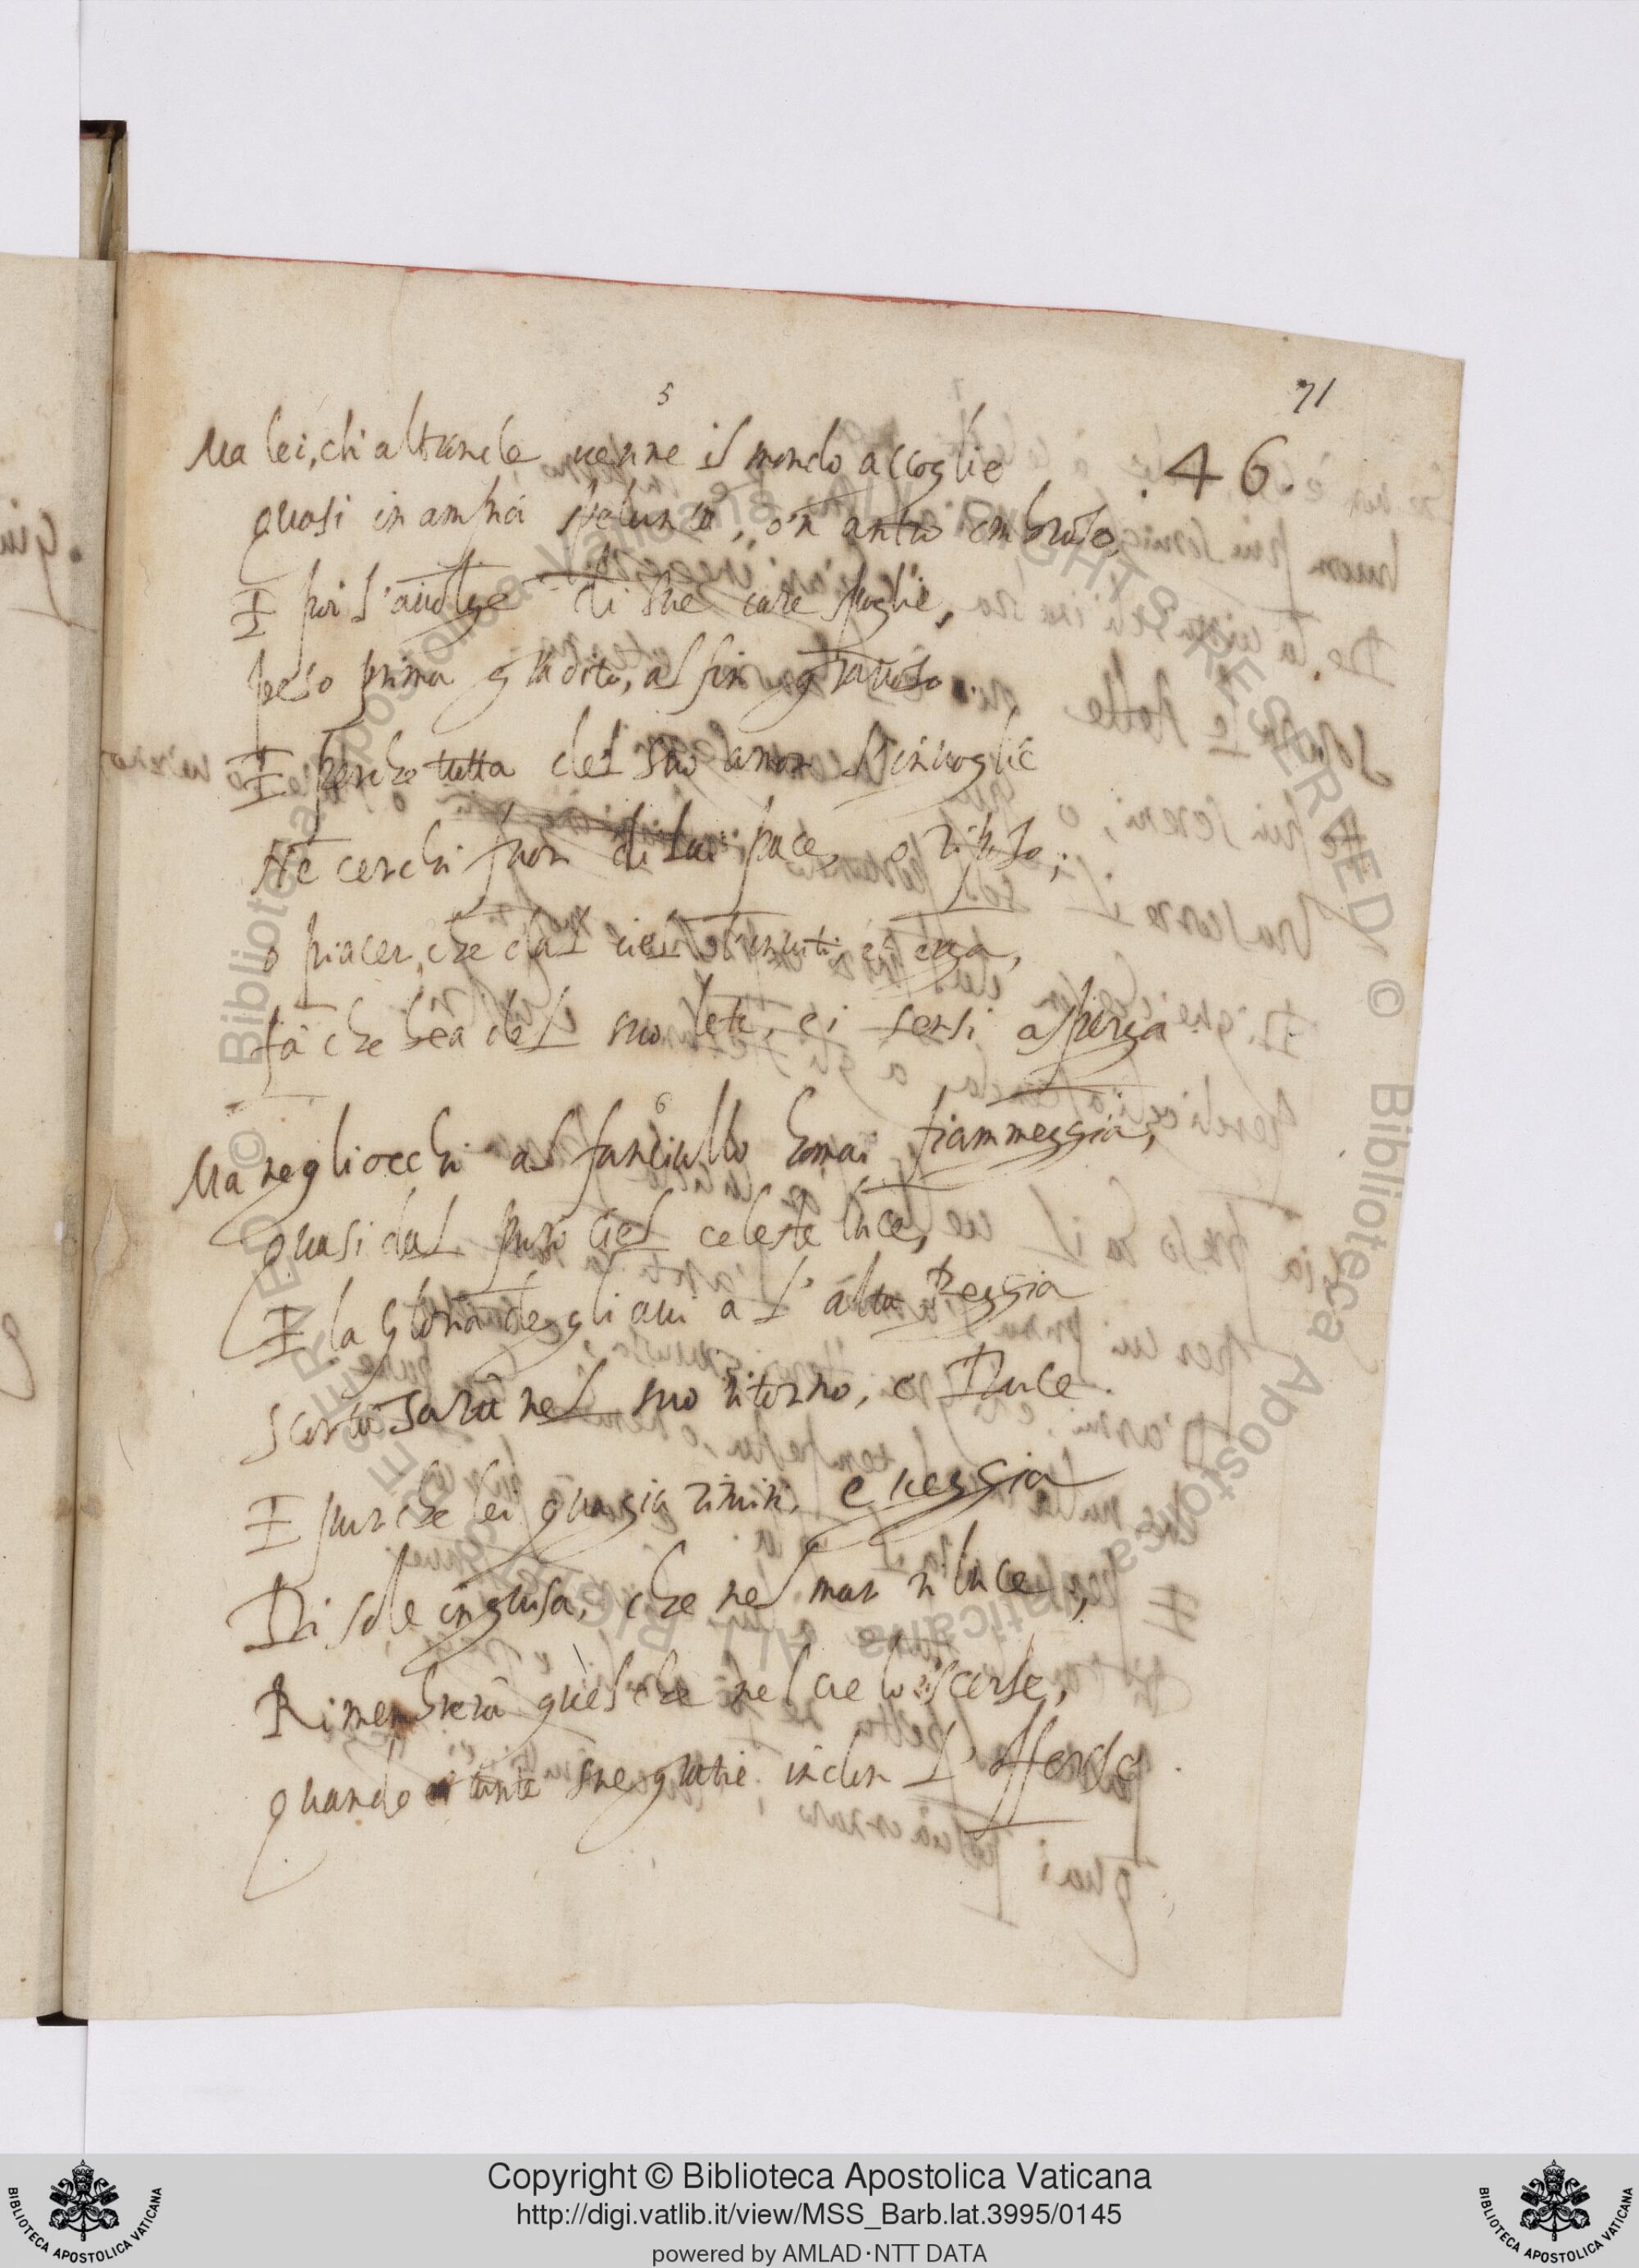 71
46
5
Ma lei, ch'altronde uenne il mondo accoglie
quasi in ampia spelunca, o'n antro ombroso,
E poi l'auolge di sue care spoglie,
peso prima gradito, al fin grauoso.
E perche tutta del suo amor s'inuoglie
Ne cerchi fuor di lui pace, o riposo;
o piacer, che dal ciel l'inuiti, ed erga,
fà che bea del suo lete, e i sensi asperga.
6
Ma negli occhi al fanciullo homai fiammeggia,
quasi dal puro ciel celeste luce,
E la gloria degli aui a l'alta Reggia
scorta sarà nel suo ritorno, e Duce.
E pur che lei qua giu rimiri, e ueggia
Di sole in guisa, che nel mar riluce,
Rimembrerà quel che nel cielo scerse,
quando tante sue gratie in don l'offerse.
Copyright © Biblioteca Apostolica Vaticana
http://digi.vatlib.it/view/MSS_Barb.lat.3995/0145
powered by AMLAD·NTT DATA
BIBLIOTECA APOSTOLICA VATICANA
BIBLIOTECA APOSTOLICA VATICANA